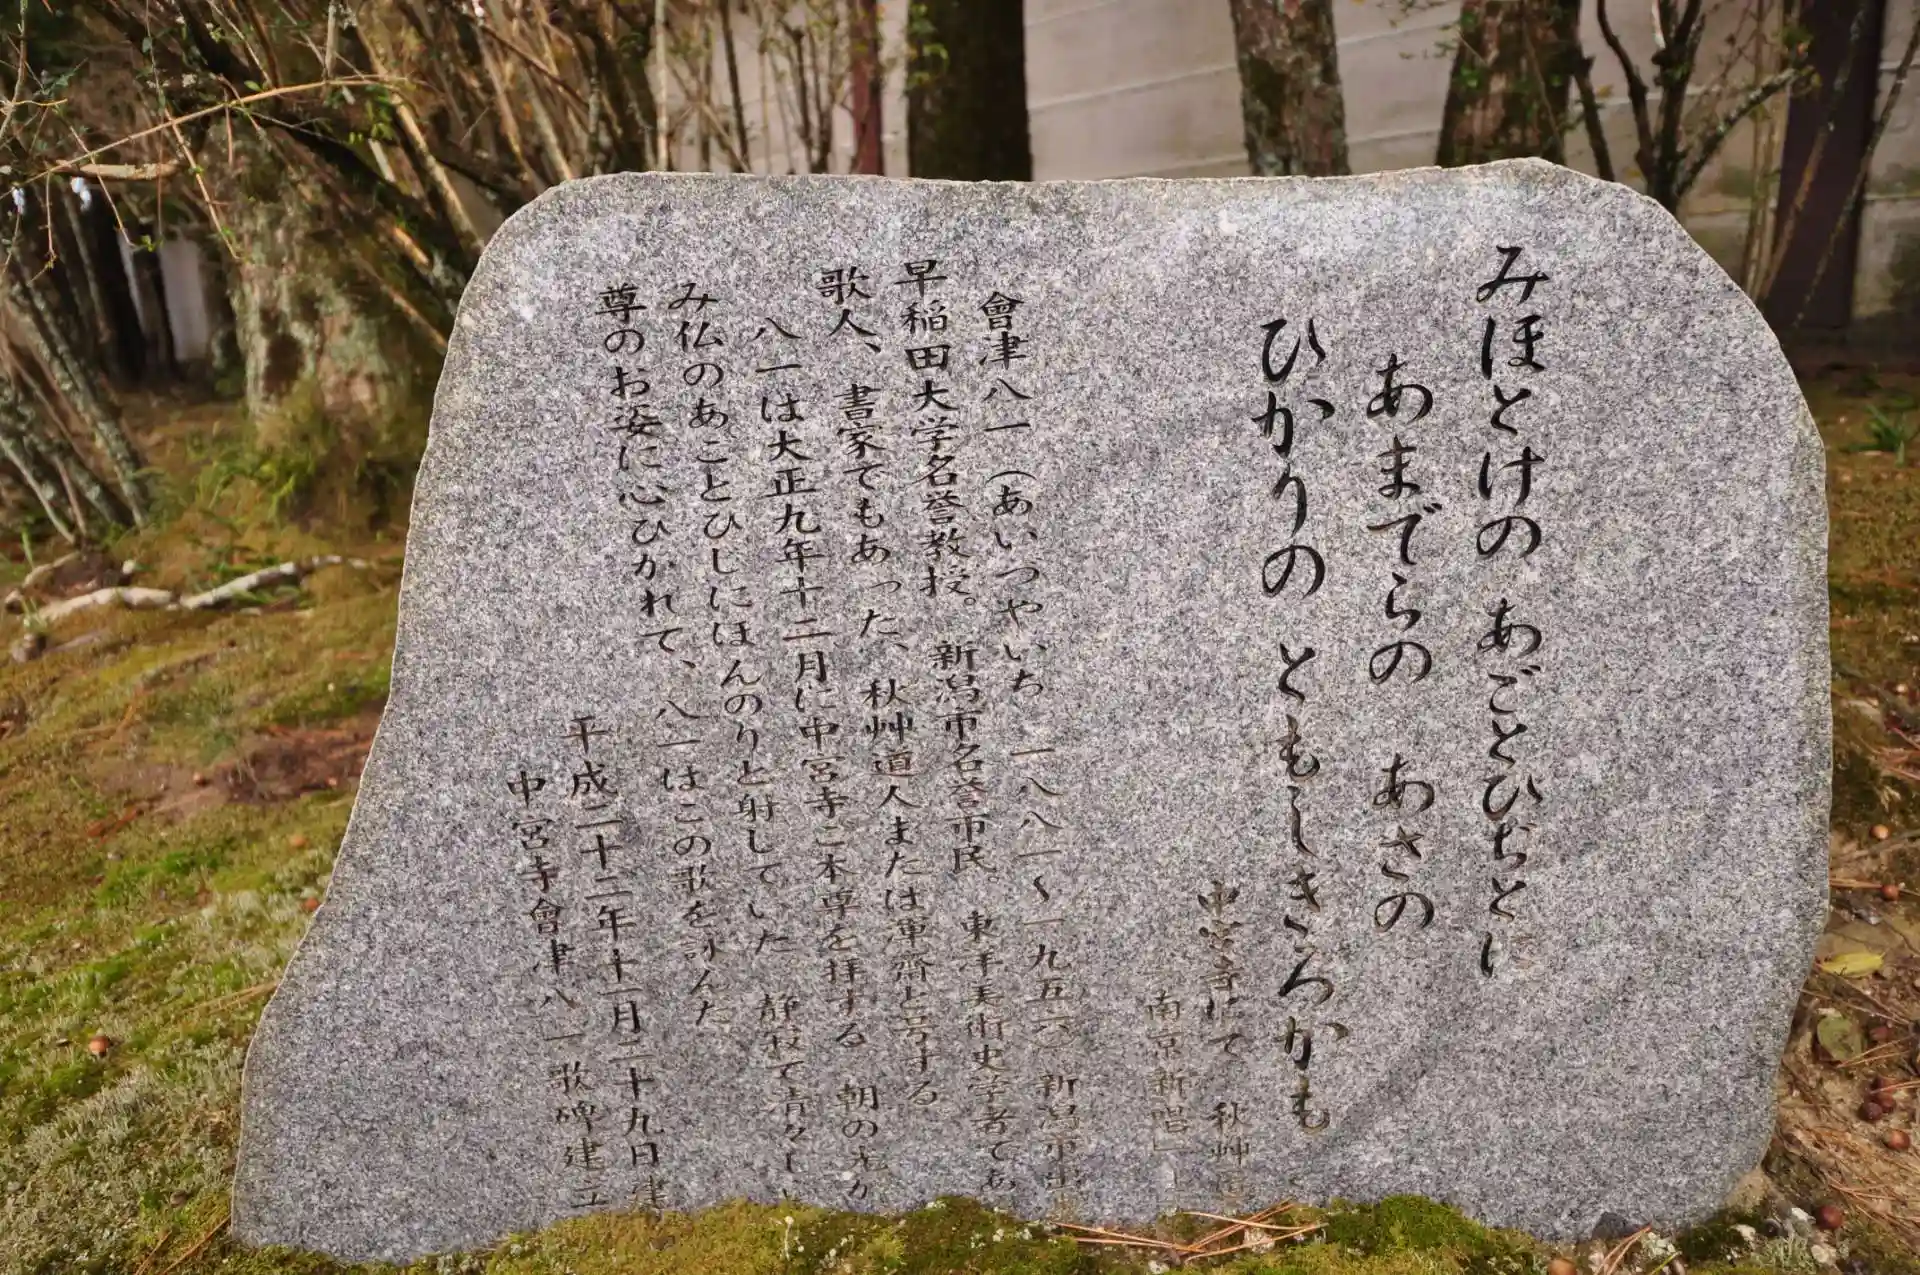 みほとけの あごとひぢとに
あまでらの あさの
ひかりの ともしきろかも
中宮寺にて 秋艸
「南京新唱」
會津八一(あいつやいち 一八八一〜一九五六 新潟市出
早稲田大学名誉教授。新潟市名誉市民 東洋美術史学者であ
歌人、書家でもあった、秋艸道人または渾齋と号する
八一は大正九年十二月に中宮寺ご本尊を拝する 朝の光が
み仏のあごとひじにほんのりと射していた 静寂で清々し
尊のお姿に心ひかれて、八一はこの歌を詠んだ
平成二十二年十一月二十九日建
中宮寺會津八一歌碑建立